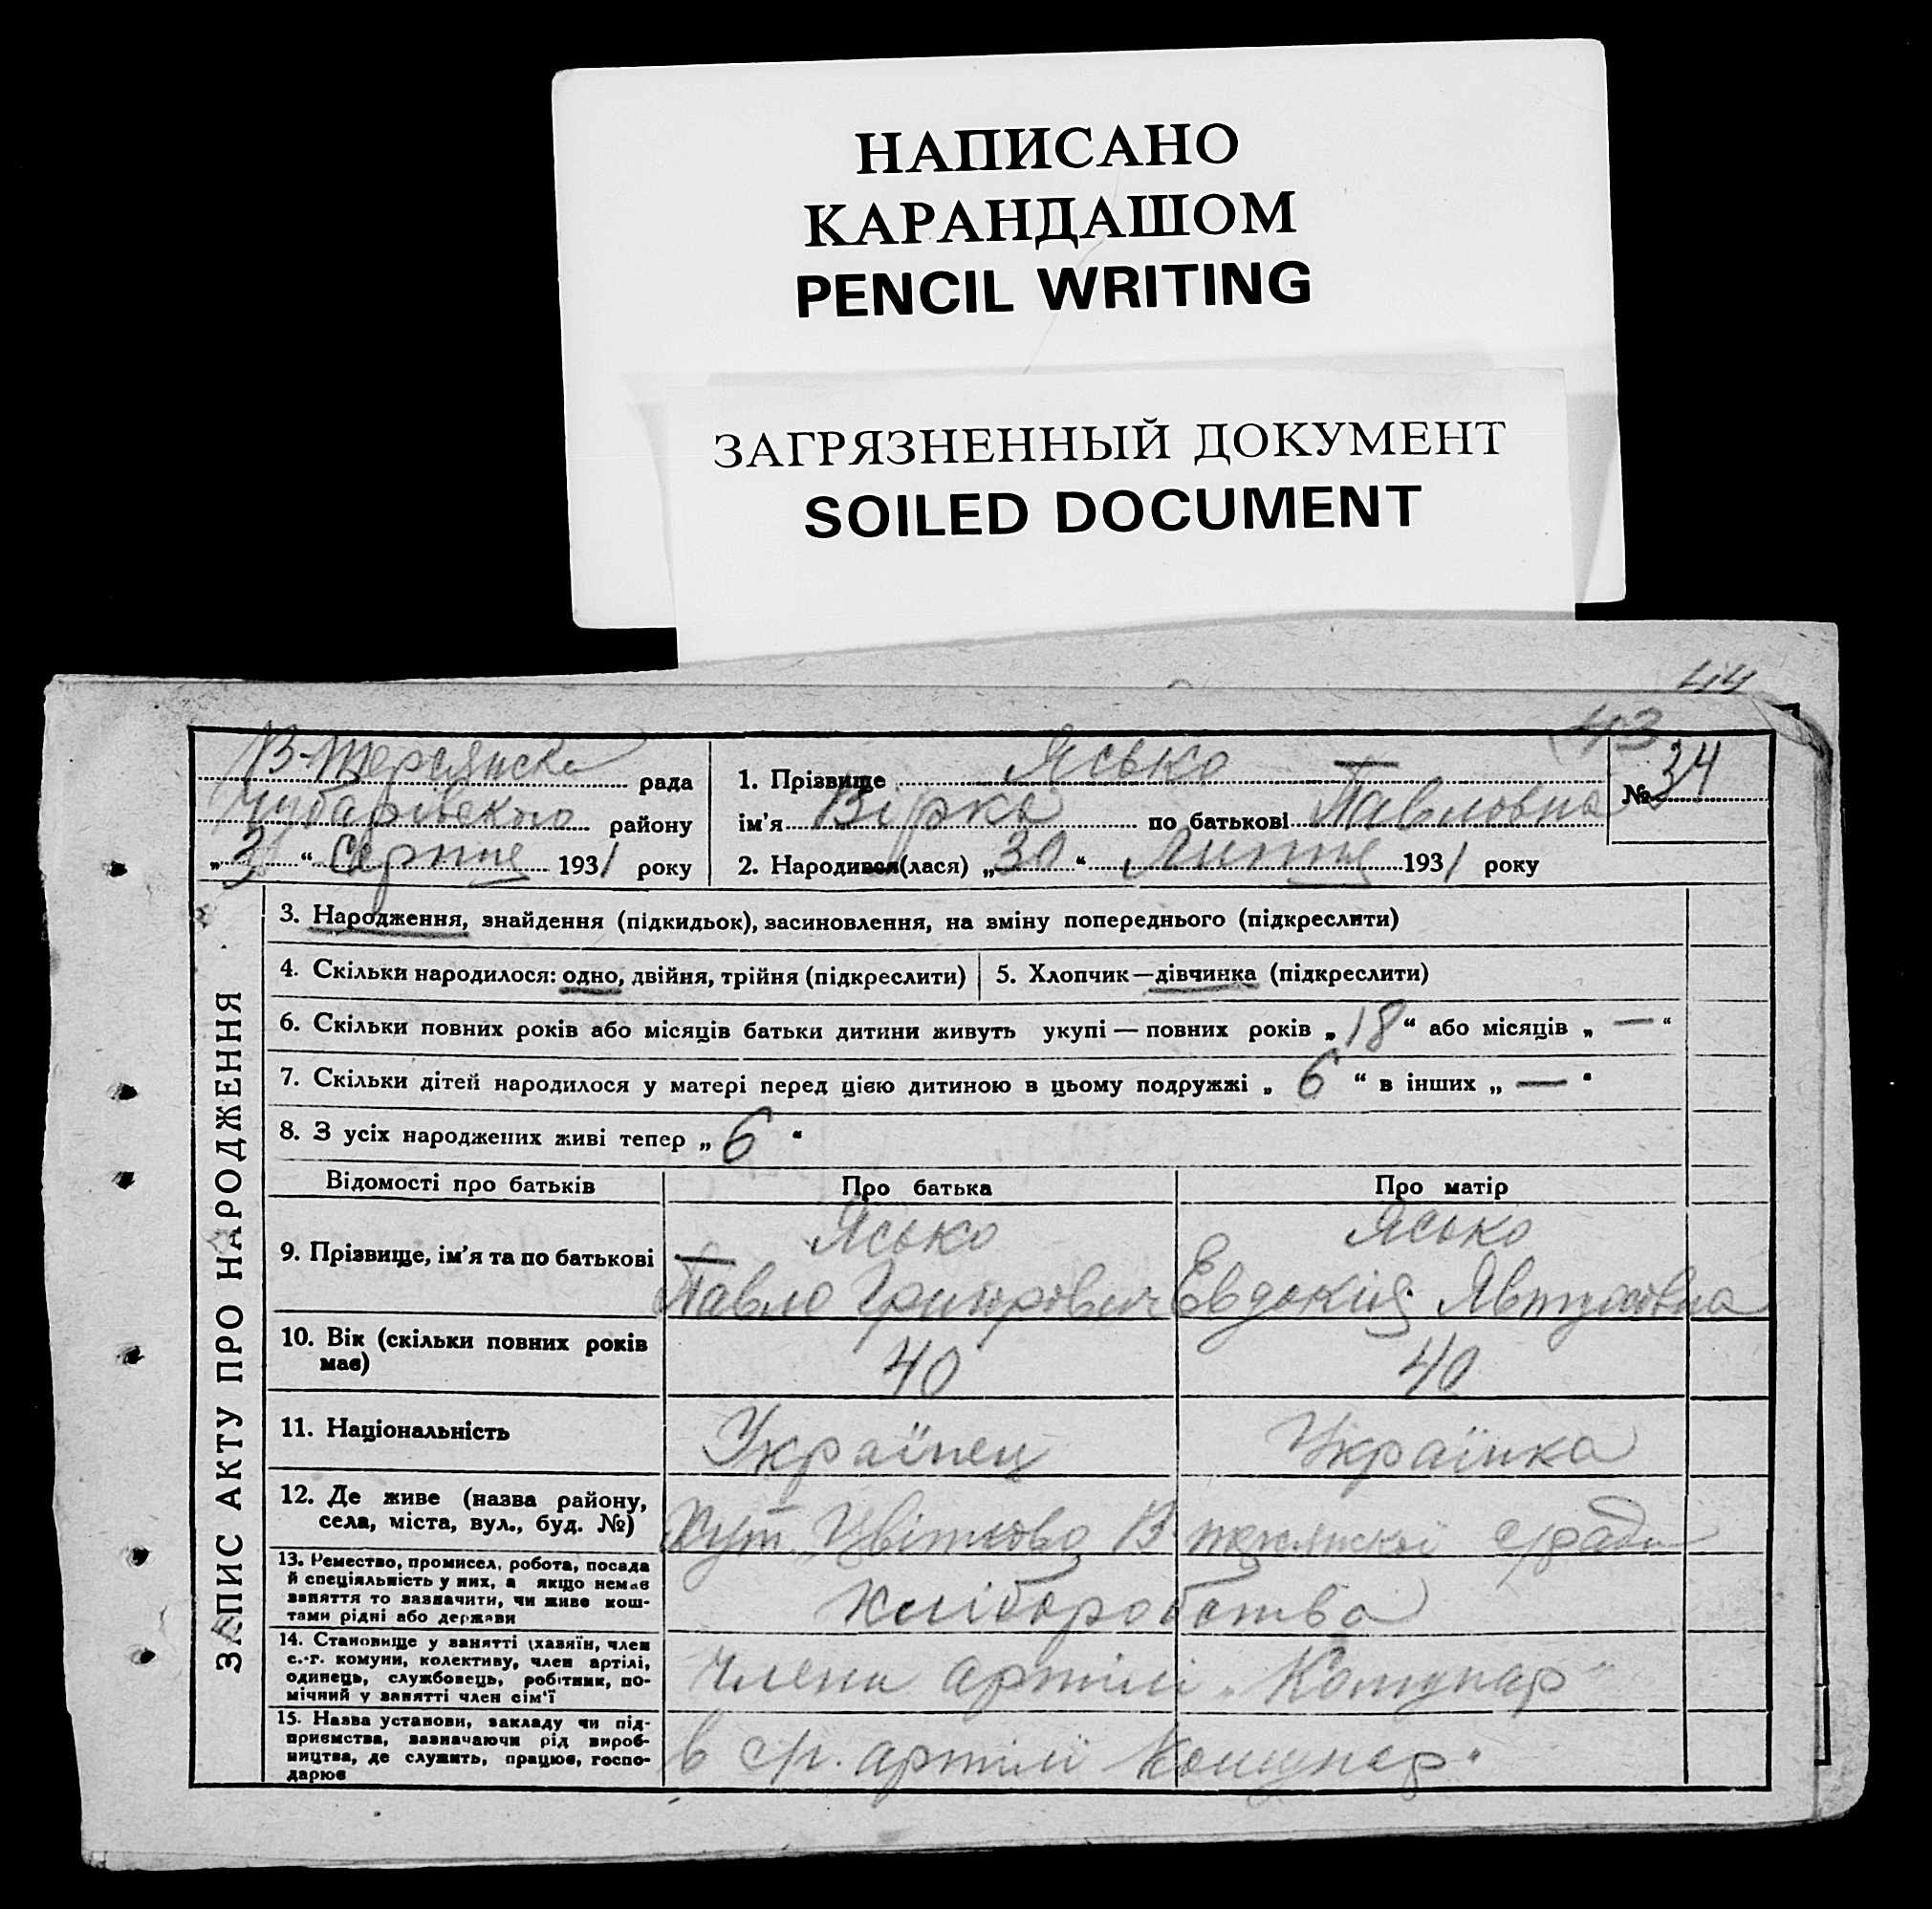 НАПИСАНО
КАРАНДАШОМ
PENCIL WRITING
ЗАГРЯЗНЕННЫЙ ДОКУМЕНТ
SOILED DOCUMENT
44
43
В-Терсянска рада
Чубарівського району
„3“ Серпня 1931 року
1. Прізвище Ясько
ім’я Вірка по батькові Павловна
2. Народився(лася) „30“ Липня 1931 року
№ 34
ЗАПИС АКТУ ПРО НАРОДЖЕННЯ
3. Народження, знайдення (підкидьок), засиновлення, на зміну попереднього (підкреслити)
4. Скільки народилося: одно, двійня, трійня (підкреслити) 5. Хлопчик—дівчинка (підкреслити)
6. Скільки повних років або місяців батьки дитини живуть укупі — повних років „18“ або місяців „—“
7. Скільки дітей народилося у матері перед цією дитиною в цьому подружжі „6“ в інших „—“
8. З усіх народжених живі тепер „6“
Відомості про батьків Про батька Про матір
9. Прізвище, ім’я та по батькові
Ясько
Павло Григорович
Ясько
Евдокія Явтуховна
10. Вік (скільки повних років
має)
40 40
11. Національність Українец Українка
12. Де живе (назва району,
села, міста, вул., буд. №)
Хут. Цвіткова В терсянської с/ради
13. Ремество, промисел, робота, посада
й спеціяльність у них, а якщо немає
заняття то зазначити, чи живе кош-
тами рідні або держави
Хліборобство
14. Становище у занятті (хазяїн, член
с.-г. комуни, колективу, член артілі,
одинець, службовець, робітник, по-
мічний у занятті член сім’ї
члени артілі „Комунар“
15. Назва установи, закладу чи під-
приємства, зазначаючи рід вироб-
ництва, де служить, працює, госпо-
дарює
в артілі Комунар“